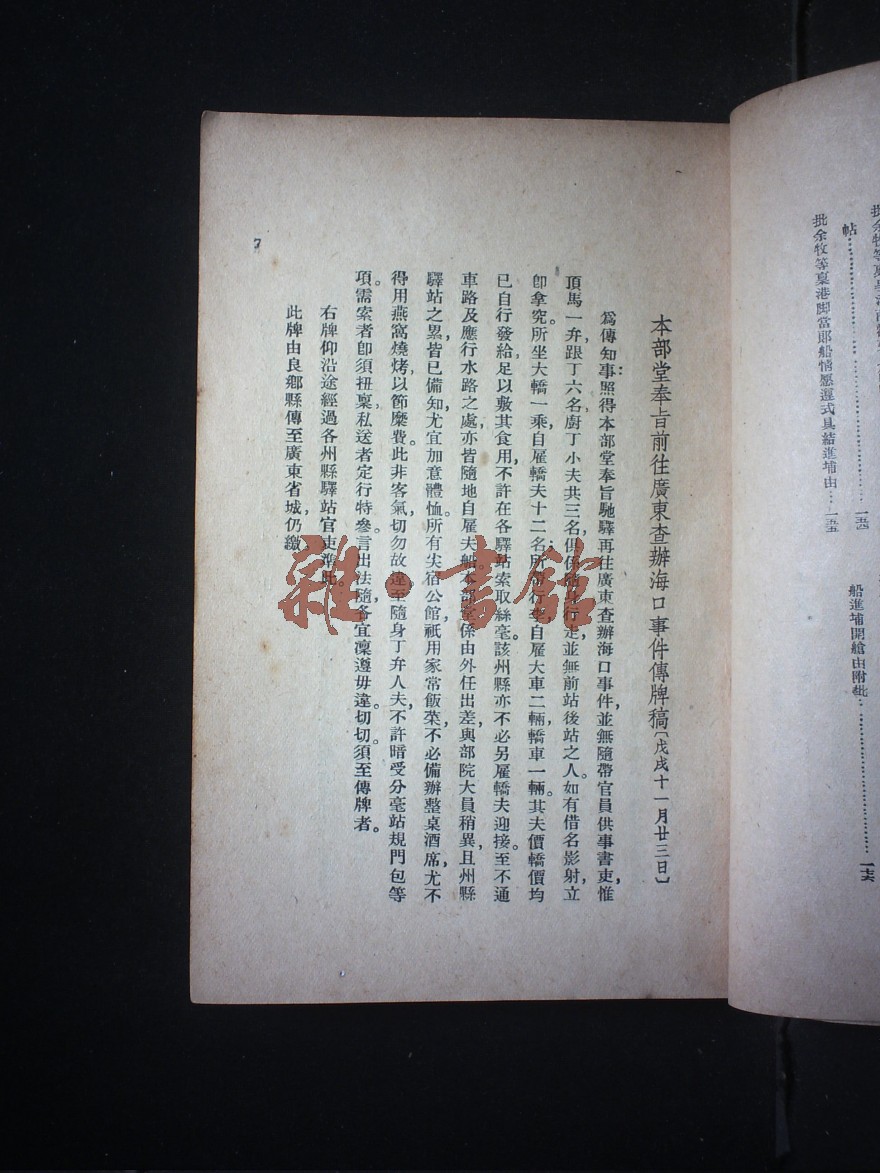 本部堂奉旨前往廣東查辦海口事件傳牌稿〔戊戌十一月廿三日〕
爲傳知事：照得本部堂奉旨馳驛再往廣東查辦海口事件，並無隨帶官員供事書吏，惟
頂馬一弁，跟丁六名，廚丁小夫共三名，俱係隨身行走，並無前站後站之人。如有借名影射，立
卽拿究。所坐大轎一乘，自雇轎夫十二名，所帶行李自雇大車二輛，轎車一輛。其夫價轎價均
已自行發給，足以敷其食用，不許在各驛站索取絲毫。該州縣亦不必另雇轎夫迎接。至不通
車路及應行水路之處，亦皆隨地自雇夫船。本部堂係由外任出差，與部院大員稍異，且州縣
驛站之累，皆已備知，尤宜加意體恤。所有尖宿公館，祇用家常飯菜，不必備辦整桌酒席，尤不
得用燕窩燒烤，以節糜費。此非客氣，切勿故違。至隨身丁弁人夫，不許暗受分毫站規門包等
項。需索者卽須扭稟，私送者定行特參。言出法隨，各宜凜遵毋違。切切。須至傳牌者。
右牌仰沿途經過各州縣驛站官吏準此。
此牌由良鄉縣傳至廣東省城，仍繳。
7
帖 一五四
批余牧等稟港脚當郎船情愿遵式具結進埔由 一五五
船進埔開艙由附批 一六六
雜·書館